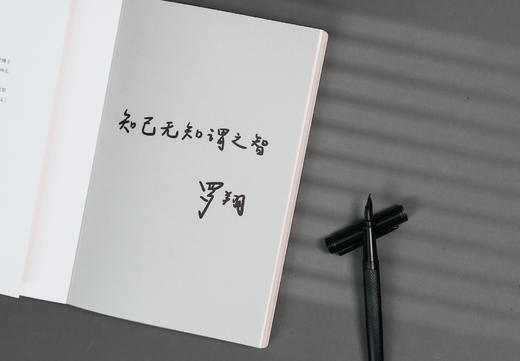 知己无知谓之智
罗翔